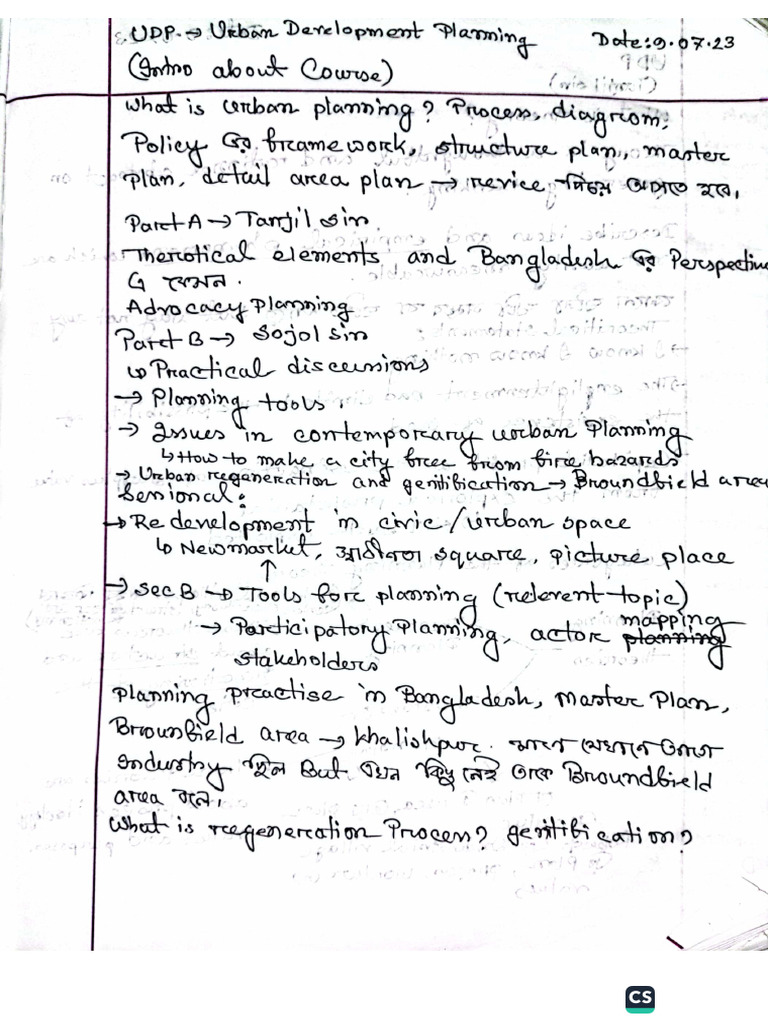 UDP → Urban Development Planning
Date: 9.07.23
(Intro about Course)
What is urban planning? Process, diagrom,
Policy এর framework, structure plan, master
plan, detail area plan → revice দিয়ে আসতে হবে।
Part A → Tanjil sir.
Therotical elements and Bangladesh এর Perspective
এ কেমন.
Advocacy Planning
Part B → Sojol sir
↳ Practical discussions
→ Planning tools.
→ Issues in contemporary urban Planning
↳ How to make a city free from fire hazards
→ Urban regeneration and gentification → Brounfield area
→ Re development in civic/urban space
↳ Newmarket, square, picture place
↑
→ Sec B → Tools for planning (relevent topic)
→ Participatory Planning, actor planning mapping
stakeholders
Planning practise in Bangladesh, Master Plan,
Brounfield area → Khalishpur. মানে যেখানে আগে
Industry ছিল But এখন কিছু নেই তাকে Brounfield
area বলে।
What is regeneration Process? gentification?
CS